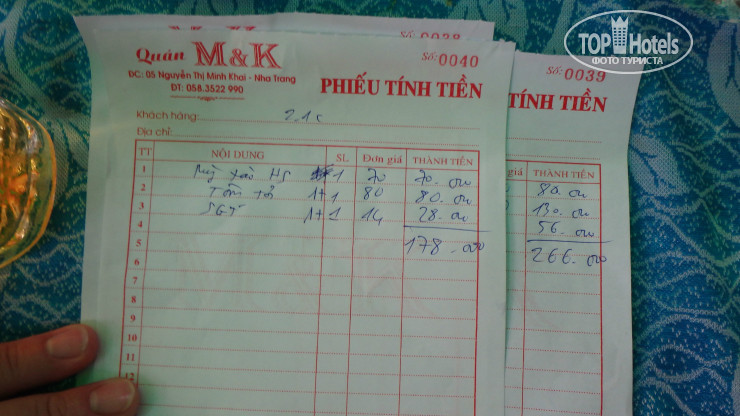 Số: 0038
TOP Hotels
ФОТО ТУРИСТА
Quán M&K
Số: 0040
ĐC: 05 Nguyễn Thị Minh Khai - Nha Trang
ĐT: 058.3522 990
PHIẾU TÍNH TIỀN
Khách hàng:
Địa chỉ:
TT NỘI DUNG SL Đơn giá THÀNH TIỀN
1 Mỳ xào HS 1 70 70.000
2 Tôm 1+1 80 80.000
3 SGT 1+1 14 28.000
4
5 178.000
6
7
8
9
10
11
12
Số: 0039
TÍNH TIỀN
THÀNH TIỀN
80.000
130.000
56.000
266.000